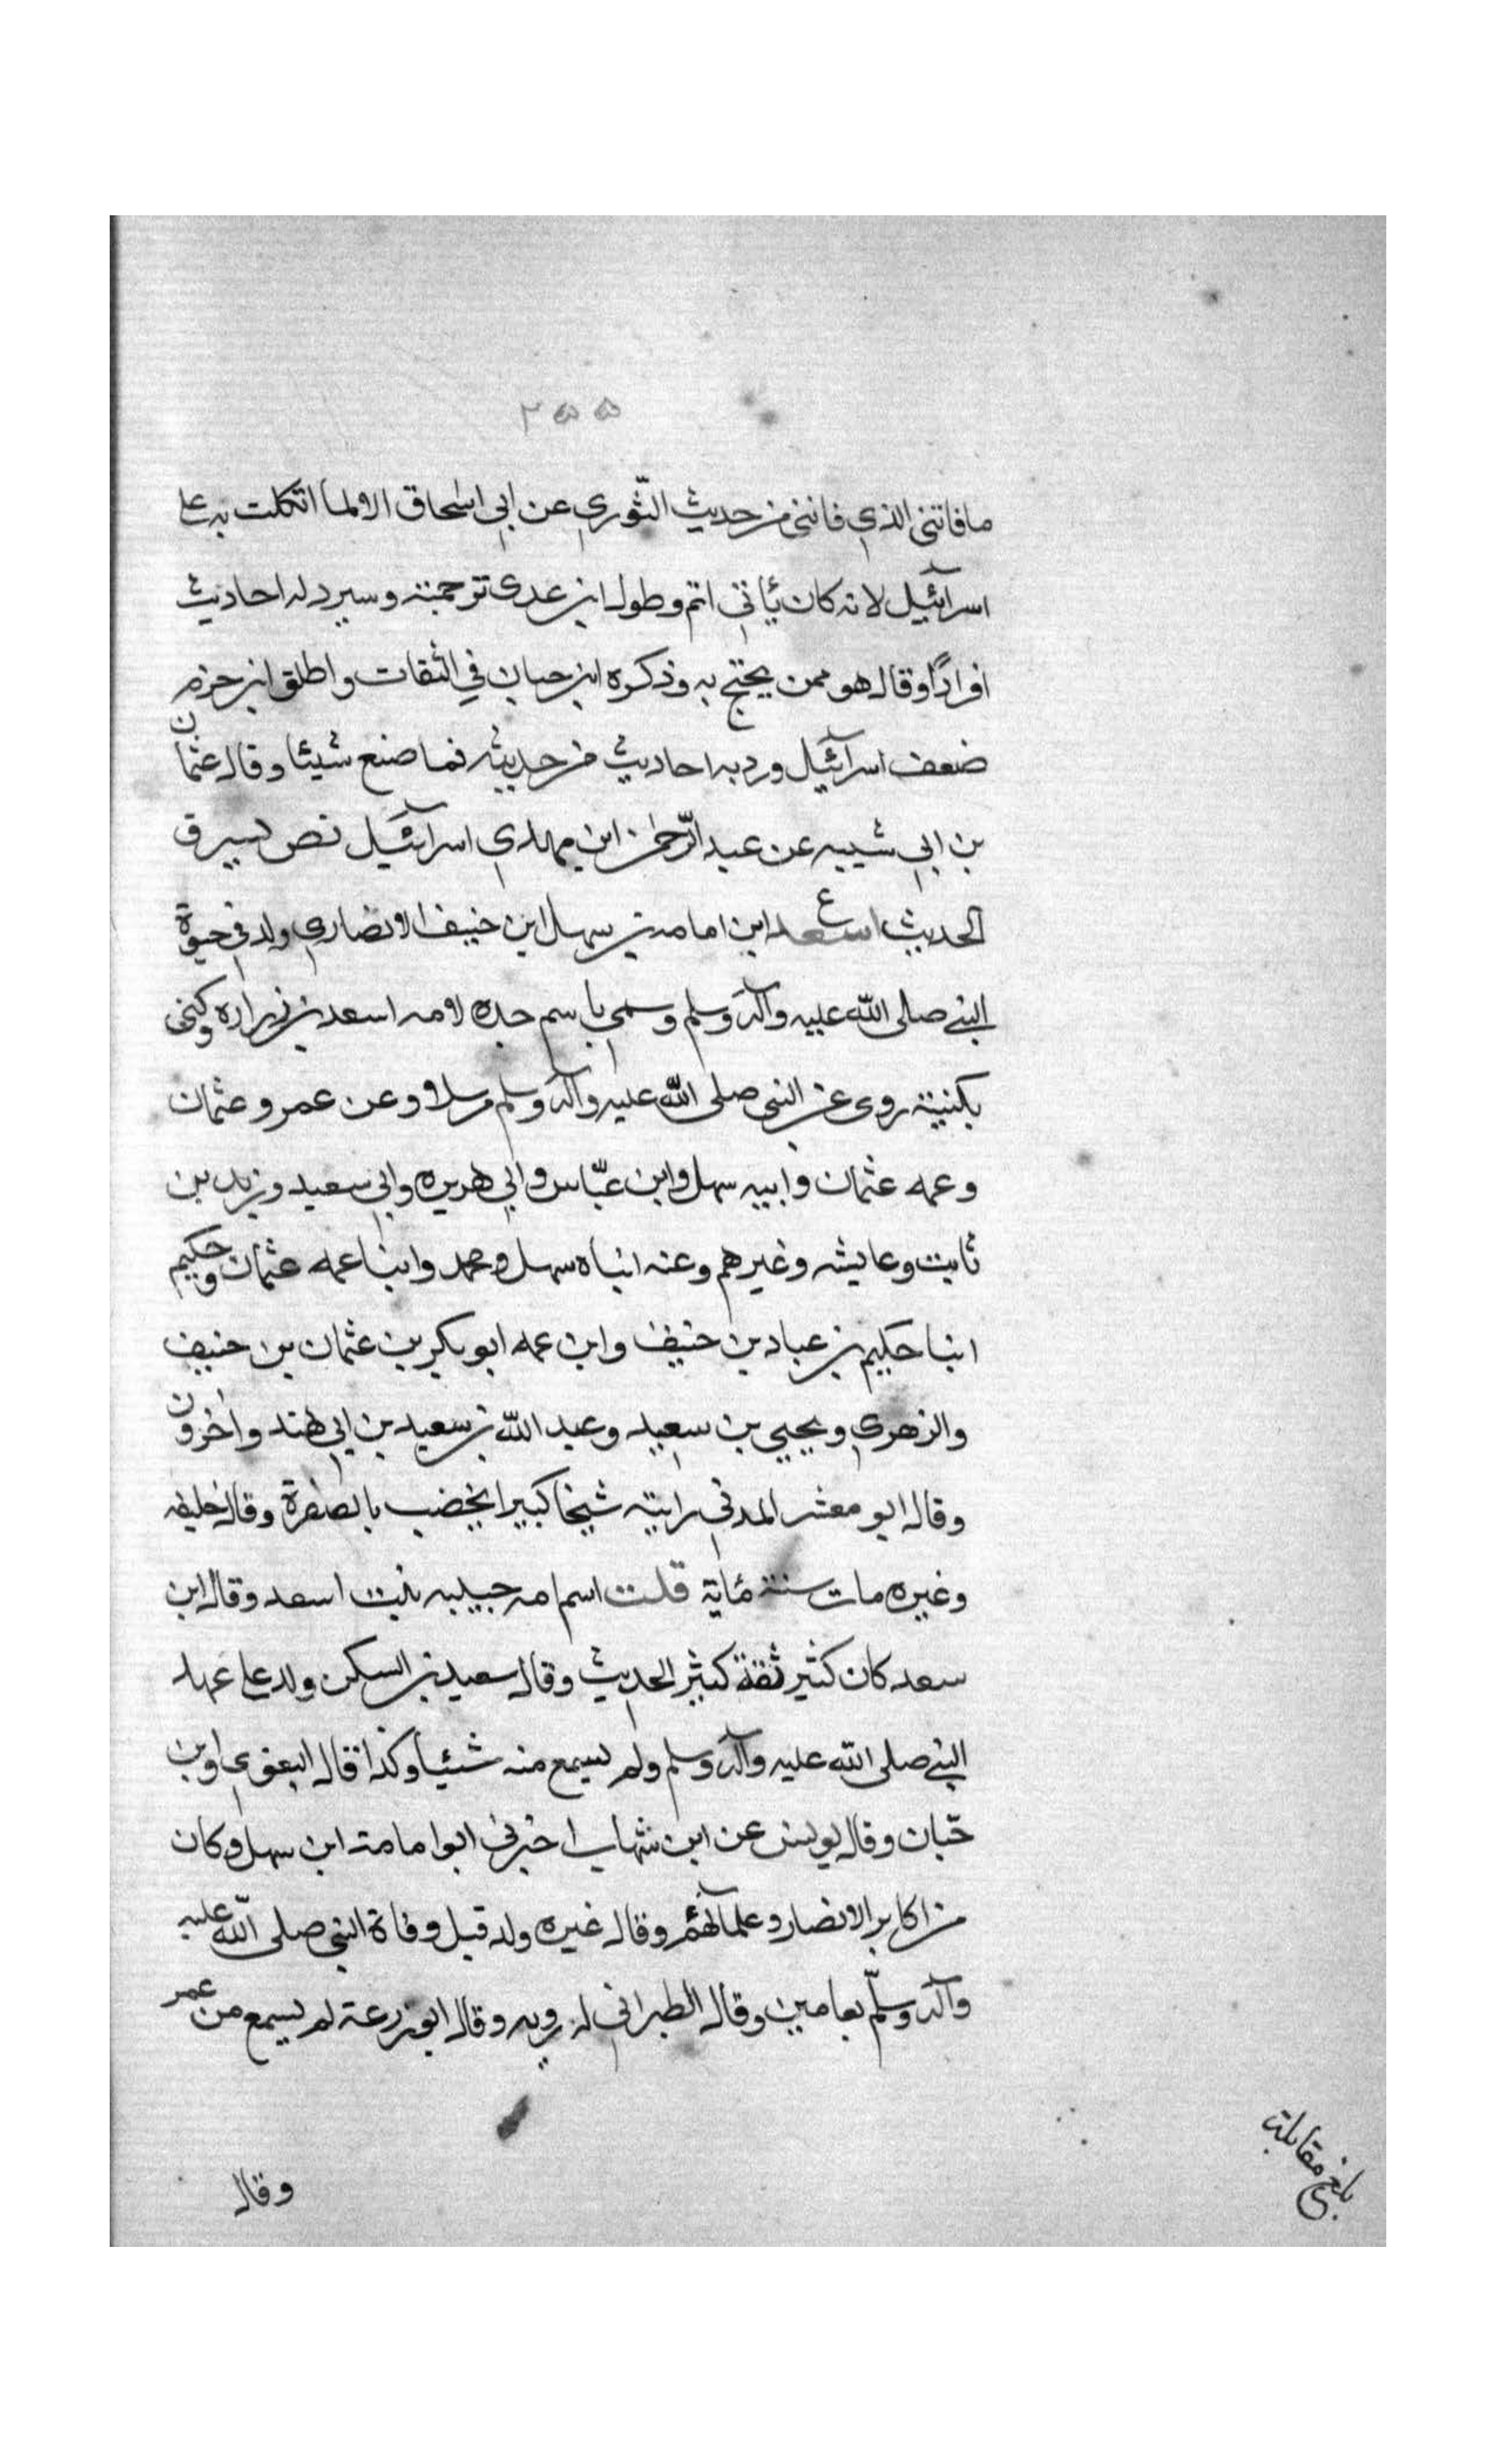 ٢٥٥
مافاتنى الذي فاتنى من حديث الثّوري عن ابي اسحاق الا لما اتكلت به على
اسرآئيل لانه كان يأتي اتم وطول ابن عدى ترجمته وسرد له احاديث
افرادًا وقال هو ممن يحتج به وذكره ابن حبان في الثقات واطلق ابن حزم
ضعف اسرآئيل ورد به احاديث من حديثه فما صنع شيئا وقال عثمان
بن ابي شيبه عن عبد الرّحمن ابن مهدي اسرآئيل نص يسرق
الحديث ع اسعد ابن امامة بن سهل ابن حنيف الانصاري ولد في حيوة
النبي صلى الله عليه وآله وسلم وسمي باسم جده لامه اسعد بن زراره وكنى
بكنيته روى عن النبي صلى الله عليه وآله وسلم مرسلا وعن عمر وعثمان
وعمه عثمان وابيه سهل وابن عبّاس وابي هريره وابي سعيد وزيد بن
ثابت وعايشه وغيرهم وعنه ابناه سهل ومحمد وابنا عمه عثمان وحكيم
ابنا حكيم بن عباد بن حنيف وابن عمه ابو بكر بن عثمان بن حنيف
والزهري ويحيي بن سعيد وعبد الله بن سعيد بن ابي هند واخرون
وقال ابو معشر المدني رايته شيخا كبيرا يخضب بالصفرة وقال خليفه
وغيره مات سنة مأية قلت اسم امه حبيبه بنت اسعد وقال ابن
سعد كان كثير ثقة كثير الحديث وقال سعيد بن السكن ولد على عهد
النبي صلى الله عليه وآله وسلم ولم يسمع منه شيئا وكذا قال البغوي وابن
حبّان وقال يونس عن ابن شهاب اخبرني ابوا مامة ابن سهل وكان
من اكابر الانصار وعلمآئهم وقال غيره ولد قبل وفاة النبي صلى الله عليه
وآله وسلّم بعامين وقال الطبراني له رويه وقال ابو زرعة لم يسمع من عمر
وقال
بلغ مقابلة